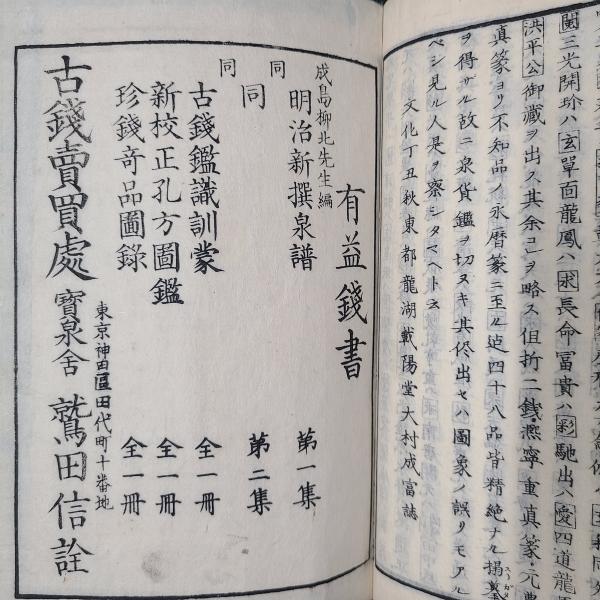 閩三光開珍ハ玄單面龍鳳ハ求長命冨貴ハ彩馳出ハ愛四道龍
洪平公御藏ヲ出ス其余コヽヲ略ス但折二錢・熙寧重真篆・元豊
真篆ヨリ不知品ノ永暦篆ニ至ル迠四十八品皆精絶ナル搨摹
ヲ得ザル故ニ泉貨鑑ヲ切ヌキ其侭出セハ圖象ノ誤リモアル
ベシ見ル人是ヲ察シタマヘト云
文化丁丑秋東都龍湖載陽堂大村成富誌
有益錢書
成島柳北先生編
明治新撰泉譜 第一集
同 同 第二集
同 古錢鑑識訓蒙 全一冊
新校正孔方圖鑑 全一冊
珍錢奇品圖錄 全一冊
東京神田區田代町十番地
古錢賣買處 寳泉舎 鷲田信詮